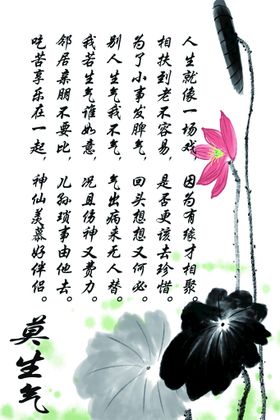 人生就像一场戏，因为有缘才相聚。
相扶到老不容易，是否更该去珍惜。
为了小事发脾气，回头想想又何必。
别人生气我不气，气出病来无人替。
我若生气谁如意，况且伤神又费力。
邻居亲朋不要比，儿孙琐事由他去。
吃苦享乐在一起，神仙羡慕好伴侣。
莫生气